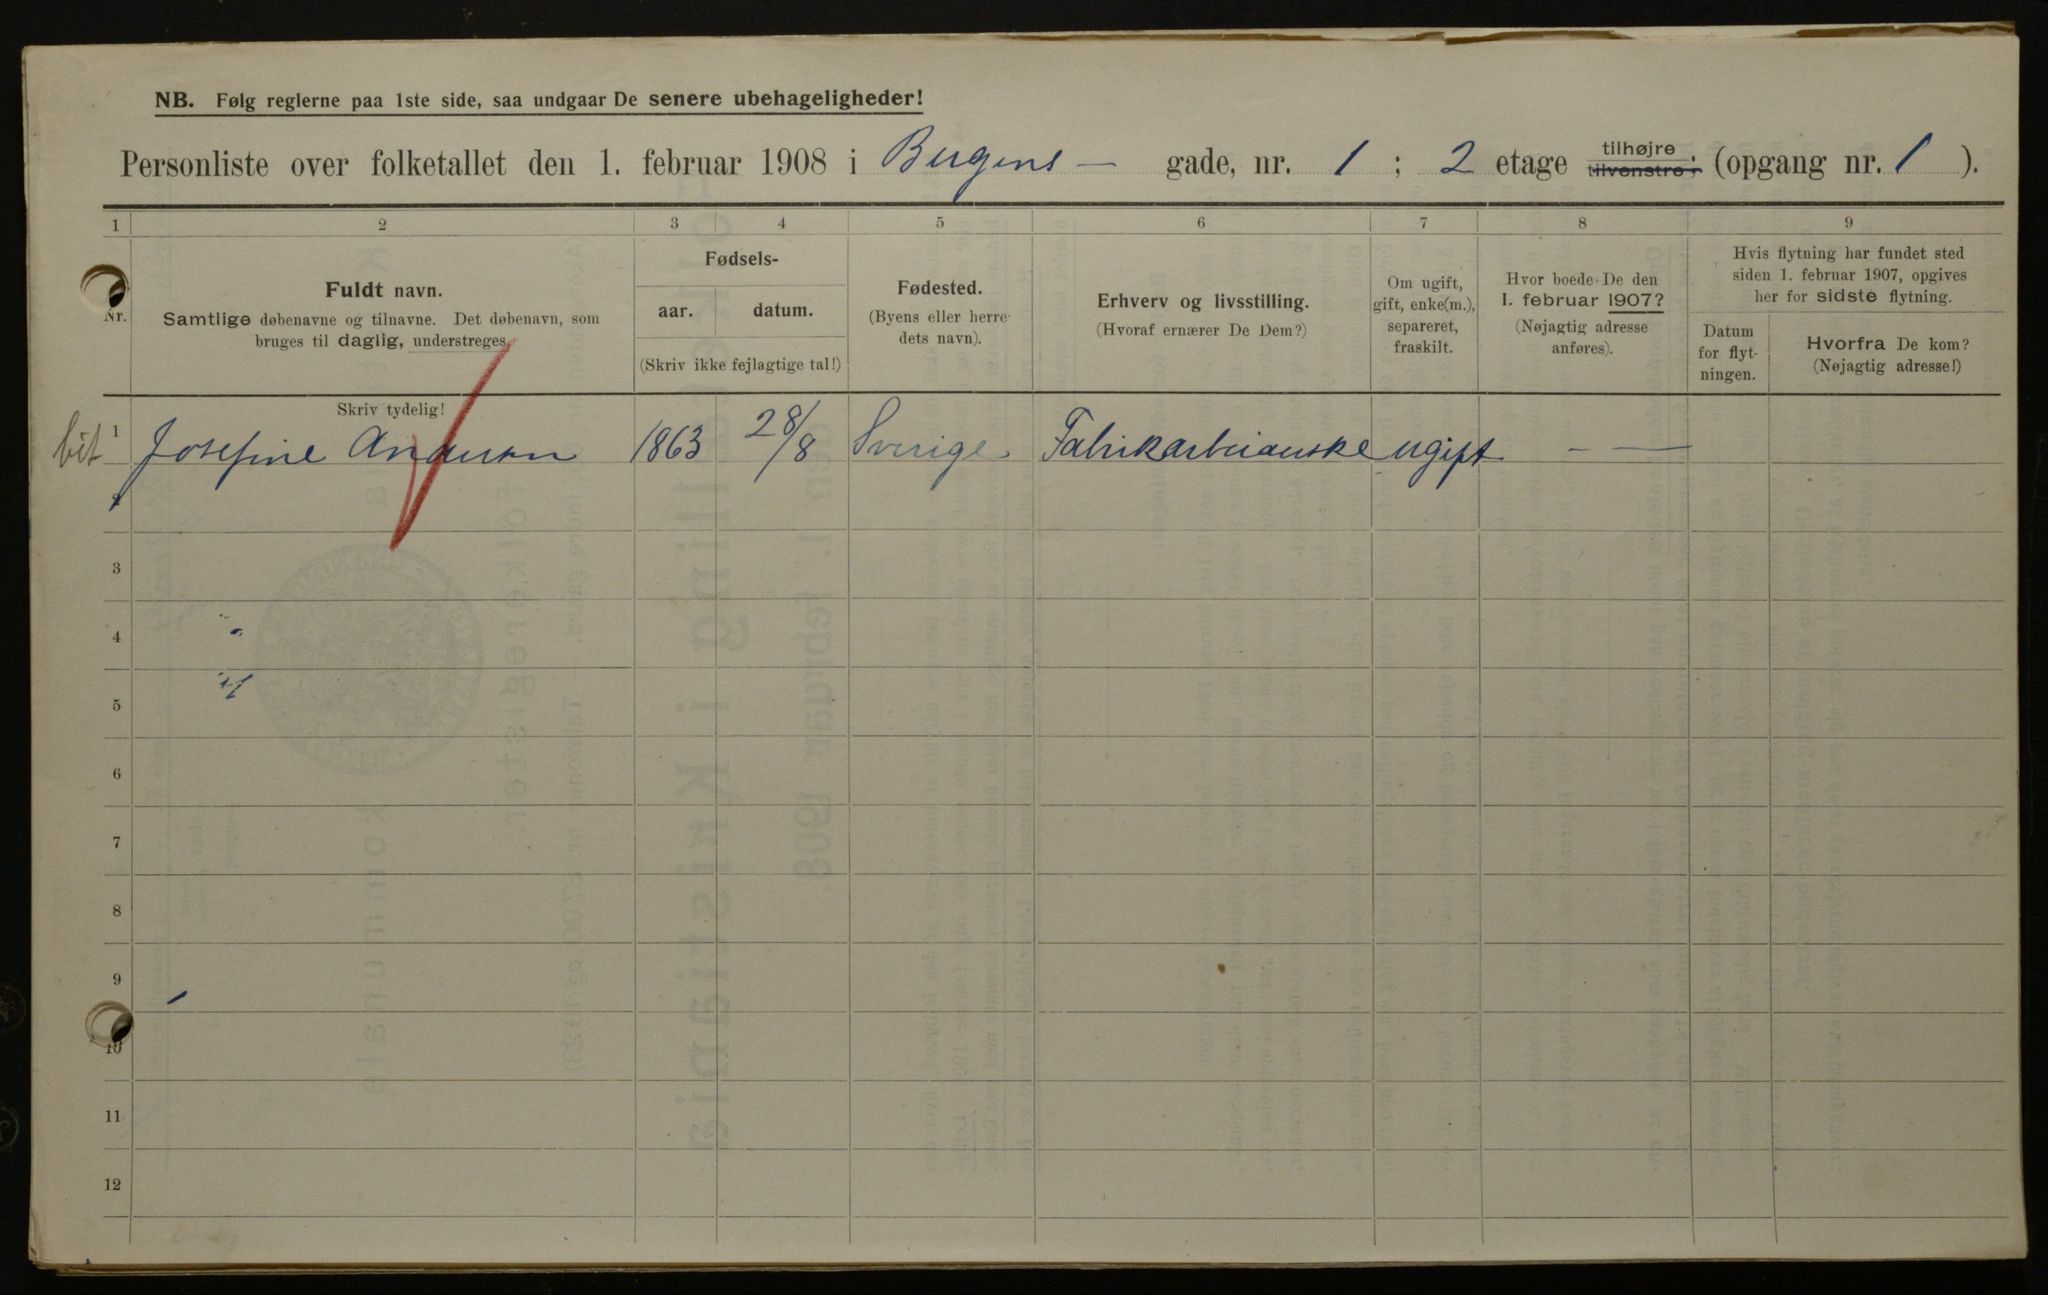 NB. Følg reglerne paa 1ste side, saa undgaar De senere ubehageligheder!
Personliste over folketallet den 1. februar 1908 i Bergens — gade, nr. 1 ; 2 etage tilhøjre. tilvenstre, (opgang nr. 1 ).
1 2 3 4 5 6 7 8 9
Nr.
Fuldt navn.
Samtlige døbenavne og tilnavne. Det døbenavn, som
bruges til daglig, understreges.
Fødsels-
aar. datum.
(Skriv ikke fejlagtige tal!)
Fødested.
(Byens eller herre-
dets navn).
Erhverv og livsstilling.
(Hvoraf ernærer De Dem?)
Om ugift,
gift, enke(m.),
separeret,
fraskilt.
Hvor boede De den
1. februar 1907?
(Nøjagtig adresse
anføres).
Hvis flytning har fundet sted
siden 1. februar 1907, opgives
her for sidste flytning.
Datum
for flyt-
ningen.
Hvorfra De kom?
(Nøjagtig adresse!)
Skriv tydelig!
1 Josefine Andersen 1863 28/8 Sverige Fabrikarbeiderske ugift — —
2
3
4
5
6
7
8
9
10
11
12